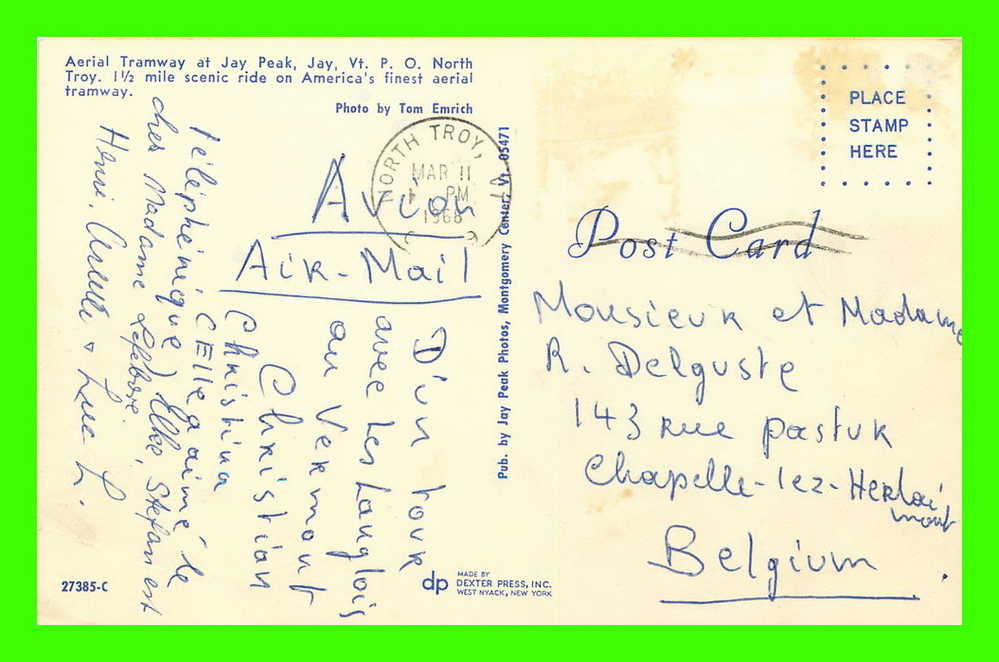 Aerial Tramway at Jay Peak, Jay, Vt. P. O. North
Troy. 1½ mile scenic ride on America's finest aerial
tramway.
Photo by Tom Emrich
NORTH TROY, VT
MAR 11
PM
1968
Avion
Air-Mail
D'un tour
avec les Langlois
au Vermont
Christian
Christina
(Elle a aimé le
téléphérique) Elke, Stefan est
chez Madame Lefebvre
Henri, & Luc L.
27385-C
dp
MADE BY
DEXTER PRESS, INC.
WEST NYACK, NEW YORK
Pub. by Jay Peak Photos, Montgomery Center, Vt. 05471
PLACE
STAMP
HERE
Post Card
Monsieur et Madame
R. Delguste
143 rue pastur
Chapelle-lez-Herlai
mont
Belgium